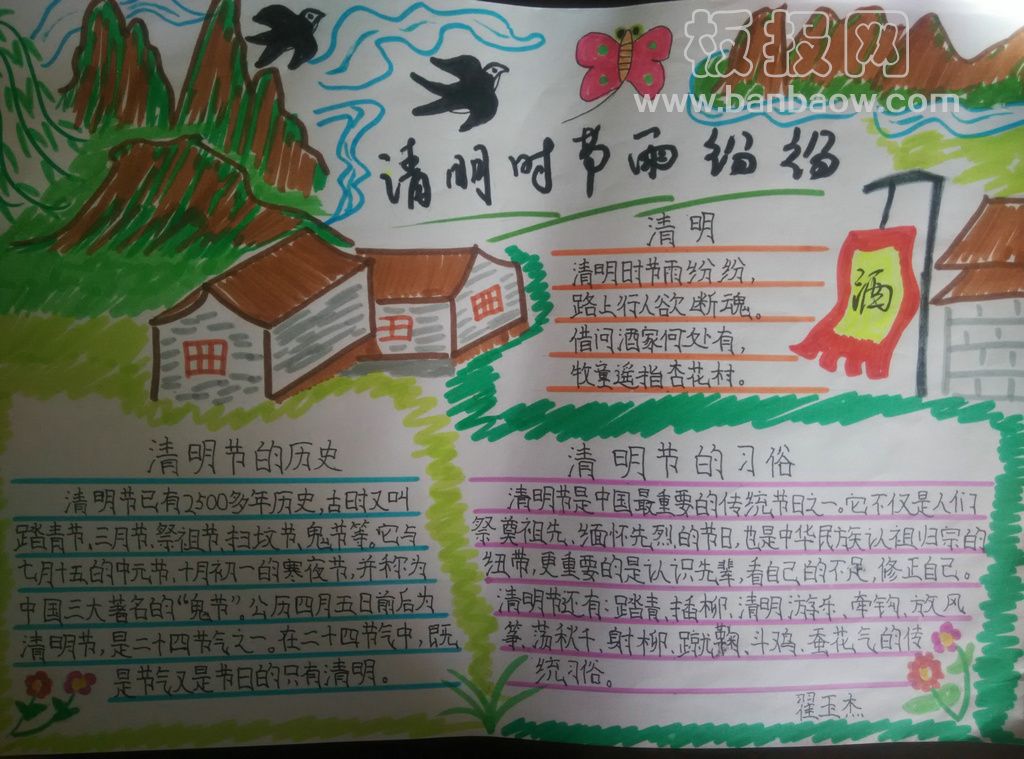 板报网
www.banbaow.com
清明时节雨纷纷
清明
清明时节雨纷纷,
路上行人欲断魂。
借问酒家何处有,
牧童遥指杏花村。
酒
清明节的历史
清明节已有2500多年历史,古时又叫
踏青节、三月节、祭祖节、扫坟节、鬼节等。它与
七月十五的中元节、十月初一的寒夜节,并称为
中国三大著名的“鬼节”。公历四月五日前后为
清明节,是二十四节气之一。在二十四节气中,既
是节气又是节日的只有清明。
清明节的习俗
清明节是中国最重要的传统节日之一。它不仅是人们
祭奠祖先、缅怀先烈的节日,也是中华民族认祖归宗的
纽带,更重要的是认识先辈,看自己的不足,修正自己。
清明节还有:踏青、插柳、清明游乐、牵钩、放风
筝、荡秋千、射柳、蹴鞠、斗鸡、蚕花气的传
统习俗。
翟玉杰